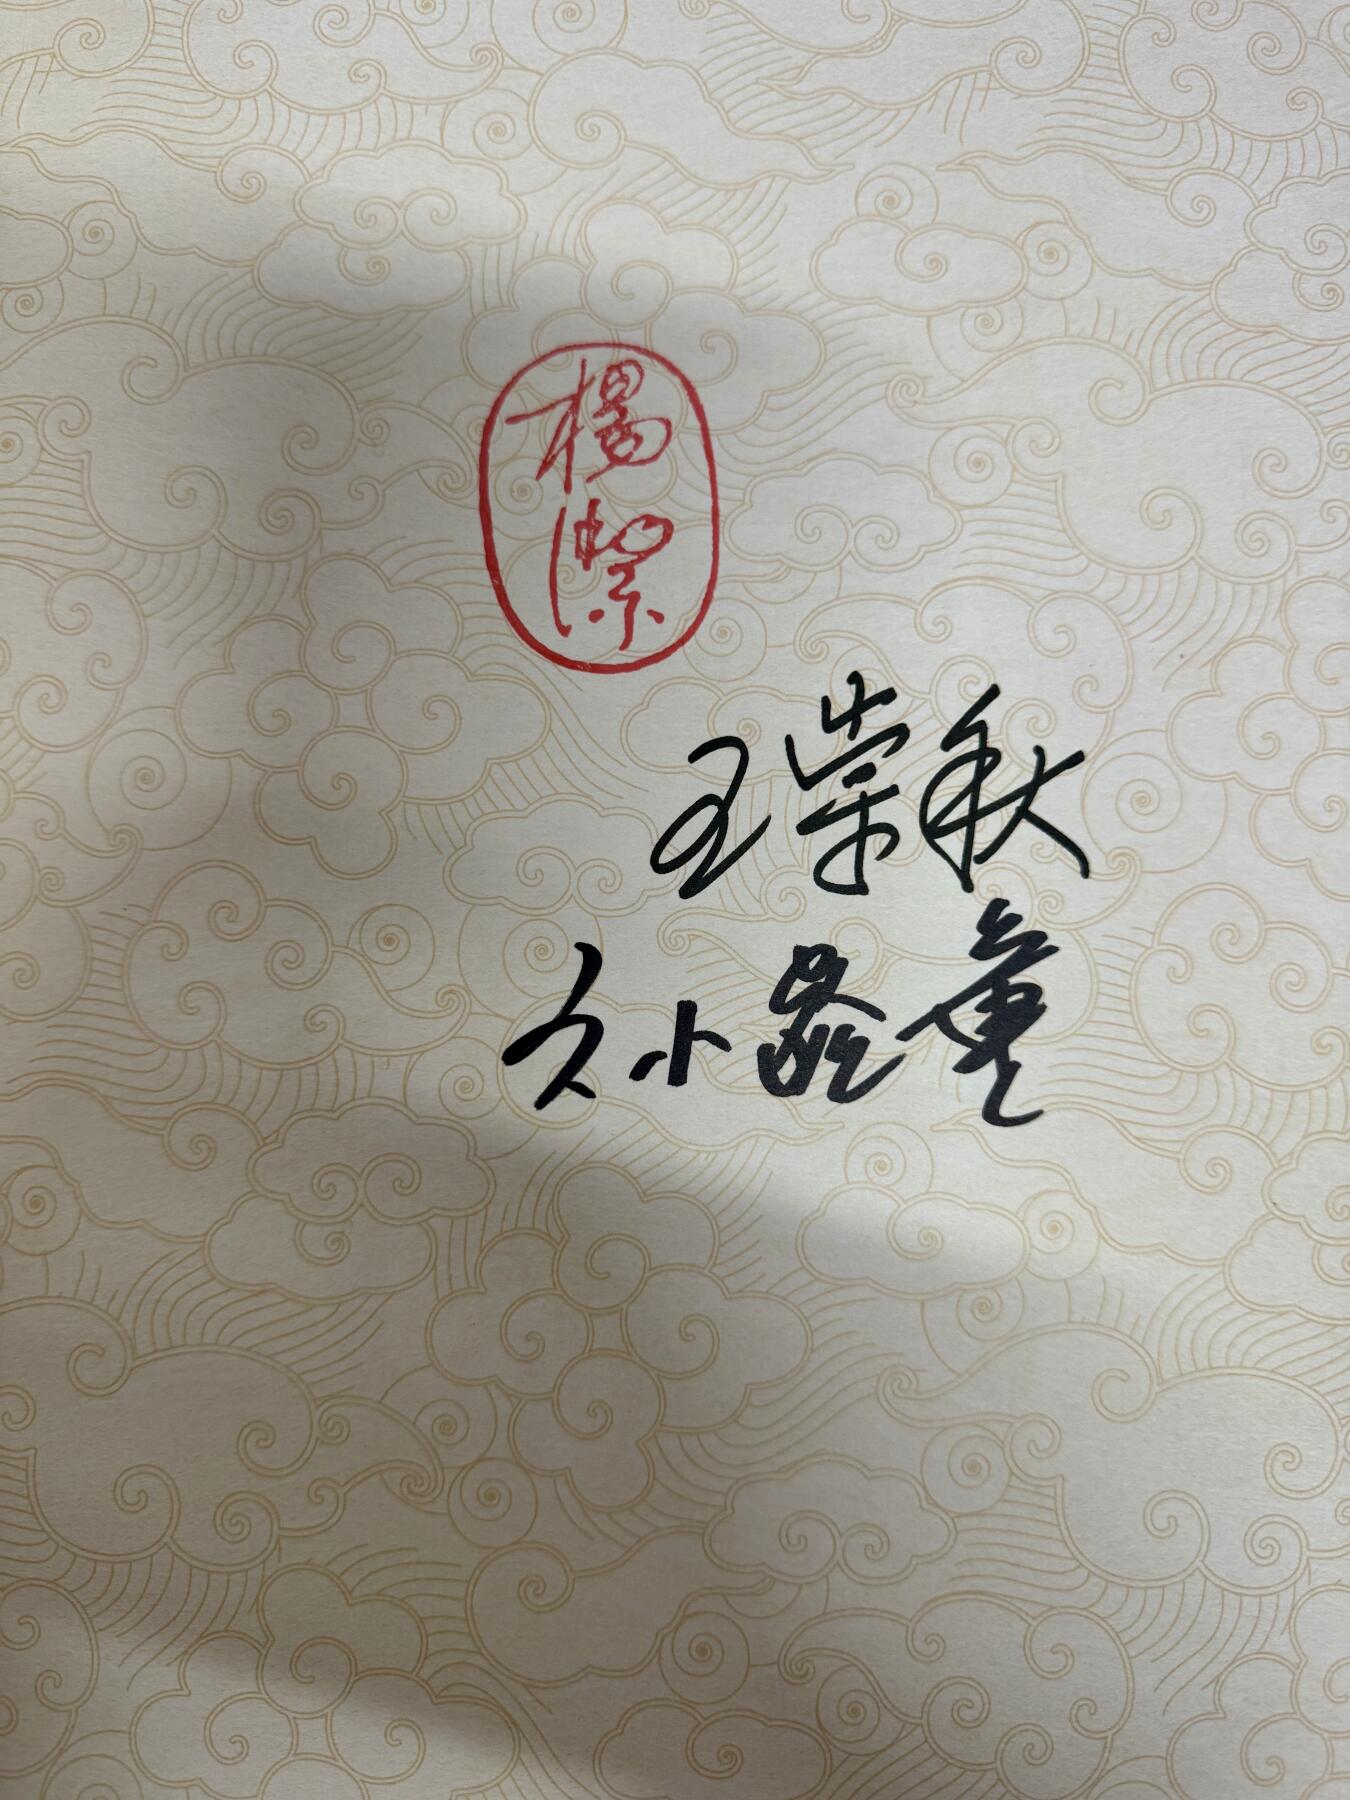 楊潔
王崇秋
六小齡童